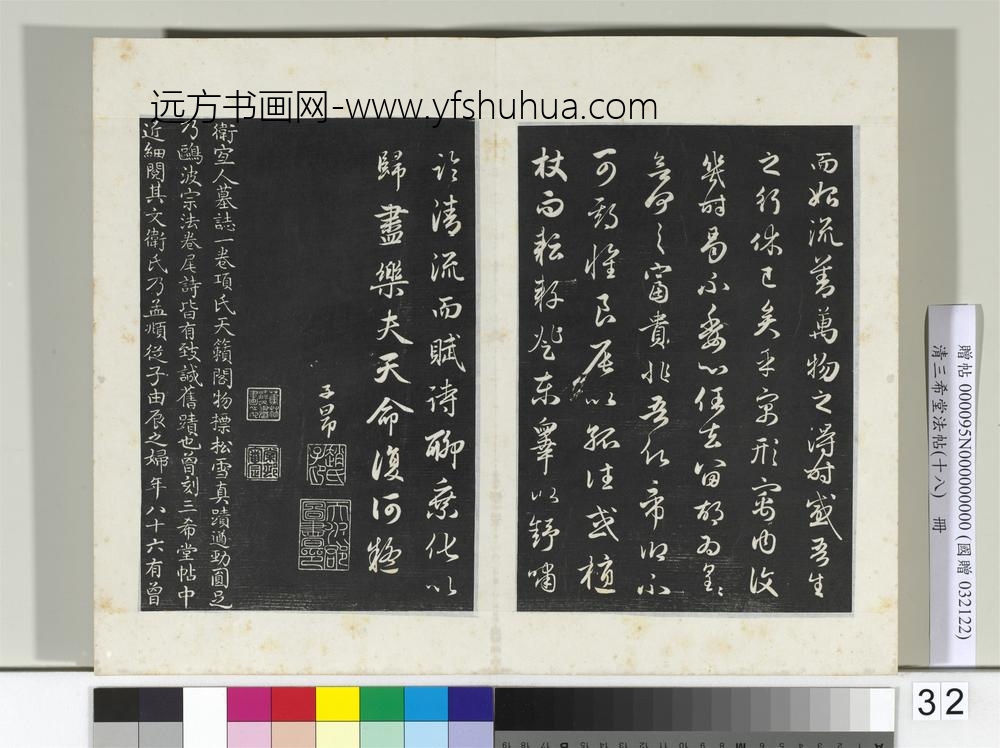 远方书画网-www.yfshuhua.com
而始流善萬物之得時感吾生
之行休已矣乎寓形宇內復
幾時曷不委心任去留胡為遑遑
兮何之富貴非吾願帝鄉不
可期懷良辰以孤往或植
杖而耘耔登東皋以舒嘯
臨清流而賦詩聊乘化以
歸盡樂夫天命復何疑
子昂
趙氏子昂
衛宜人墓誌一卷項氏天籟閣物標松雪真蹟遒勁圓足
乃鷗波宗法卷尾詩皆有致誠舊蹟也曾刻三希堂帖中
近細閱其文衛氏乃孟順從子由辰之婦年八十六有曾
贈帖 000095N000000000 (國贈 032122)
清三希堂法帖(十八) 冊
32